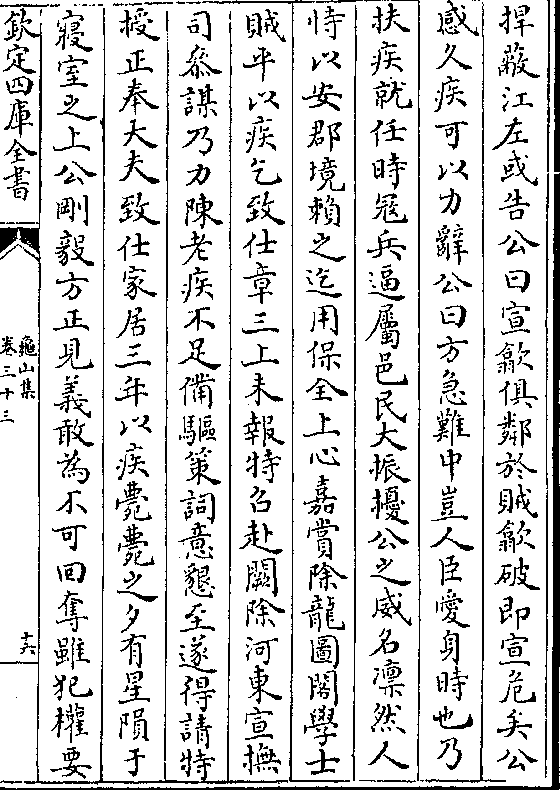 捍蔽江左或告公曰宣歙俱鄰於賊歙破即宣危矣公
感久疾可以力辭公曰方急難中豈人臣愛身時也乃
扶疾就任時冦兵逼屬邑民大振擾公之威名凛然人
恃以安郡境賴之迄用保全上心嘉賞除龍圖閣學士
賊平以疾乞致仕章三上未報特召赴闕除河東宣撫
司叅謀乃力陳老疾不足備驅策詞意懇至遂得請特
授正奉大夫致仕家居三年以疾薨薨之夕有星隕于
寢室之上公剛毅方正見義敢為不可回奪雖犯權要
欽定四庫全書
龜山集
卷三十三
十六